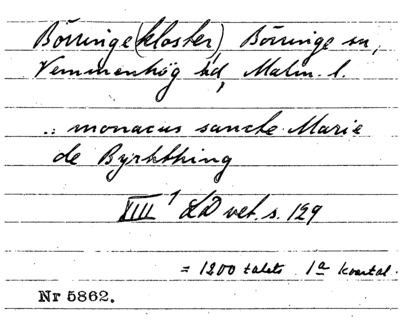 Börringe (kloster) Börringe sn,
Vemmenhög hd, Malm. l.
.. monacus sancte Marie
de Byrhthing
XIII 1 LD vet. s. 129
= 1200 talets 1a kvartal.
Nr 5862.